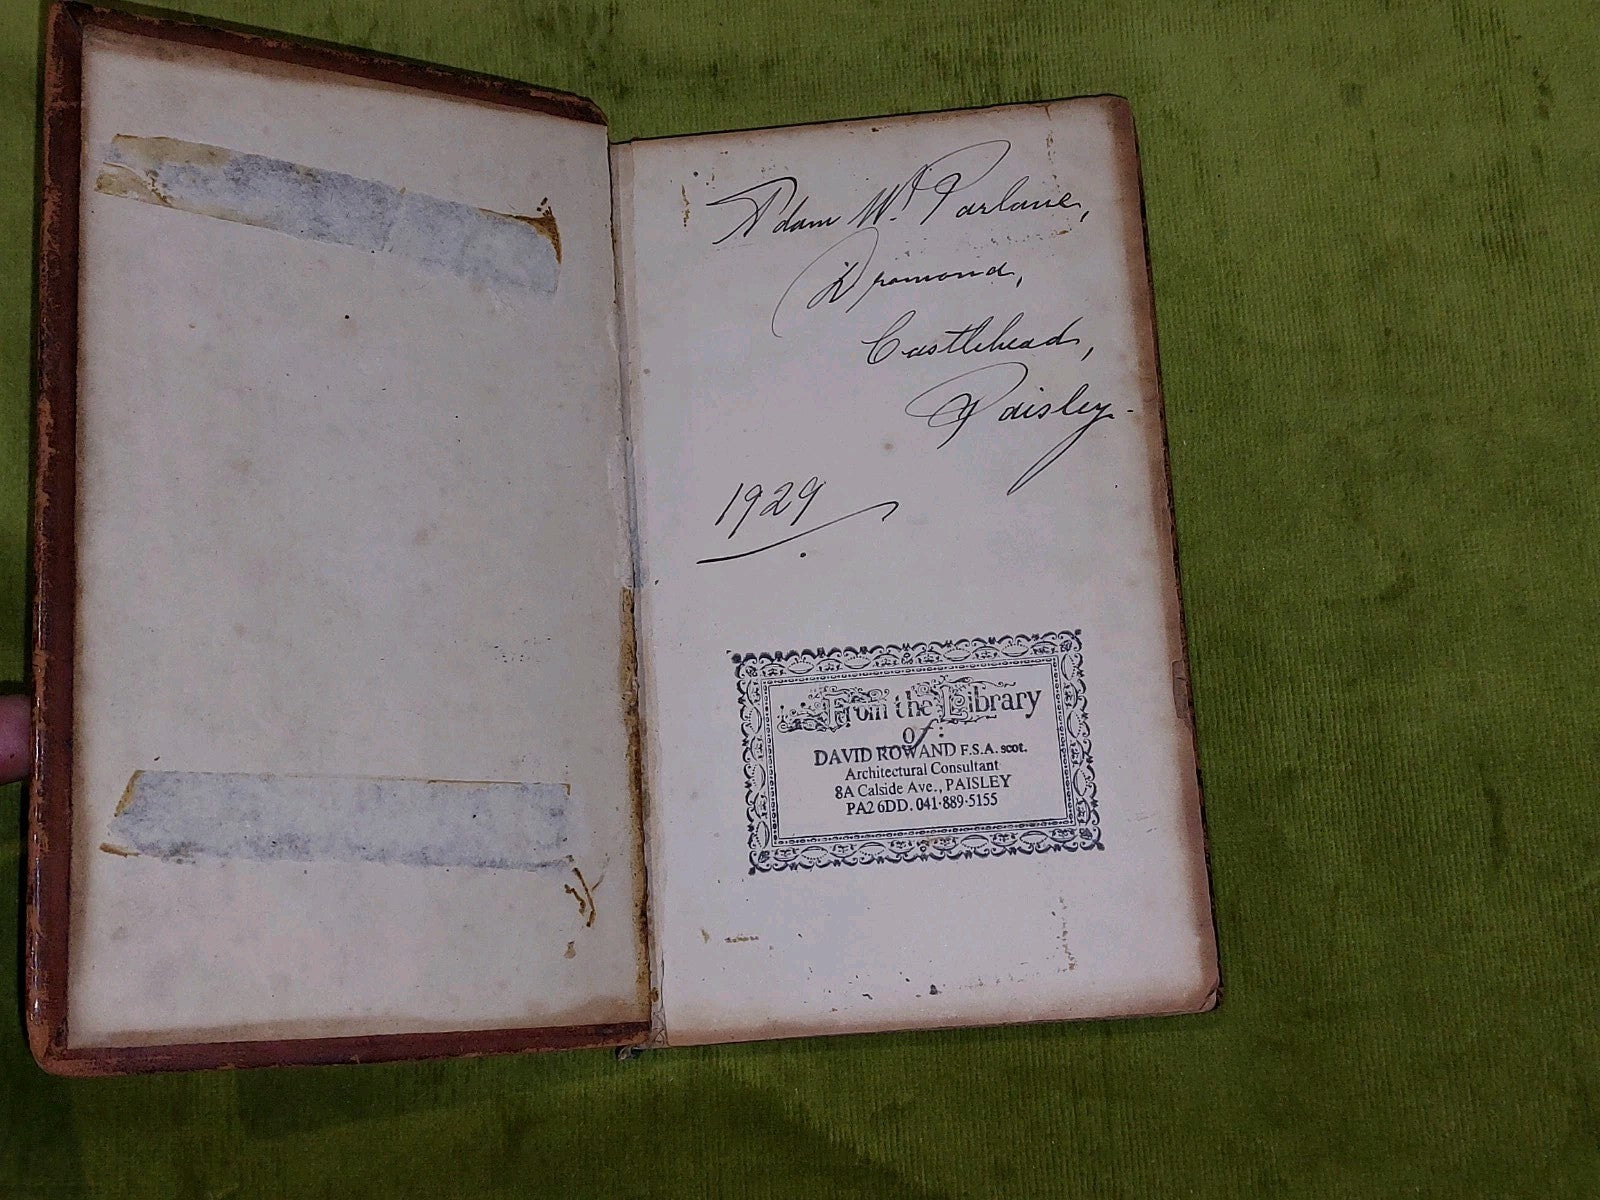 Adam McParlane,
Dromond,
Castlehead,
Paisley.
1929
From the Library
of:
DAVID ROWAND F.S.A. scot.
Architectural Consultant
8A Calside Ave., PAISLEY
PA2 6DD. 041·889·5155